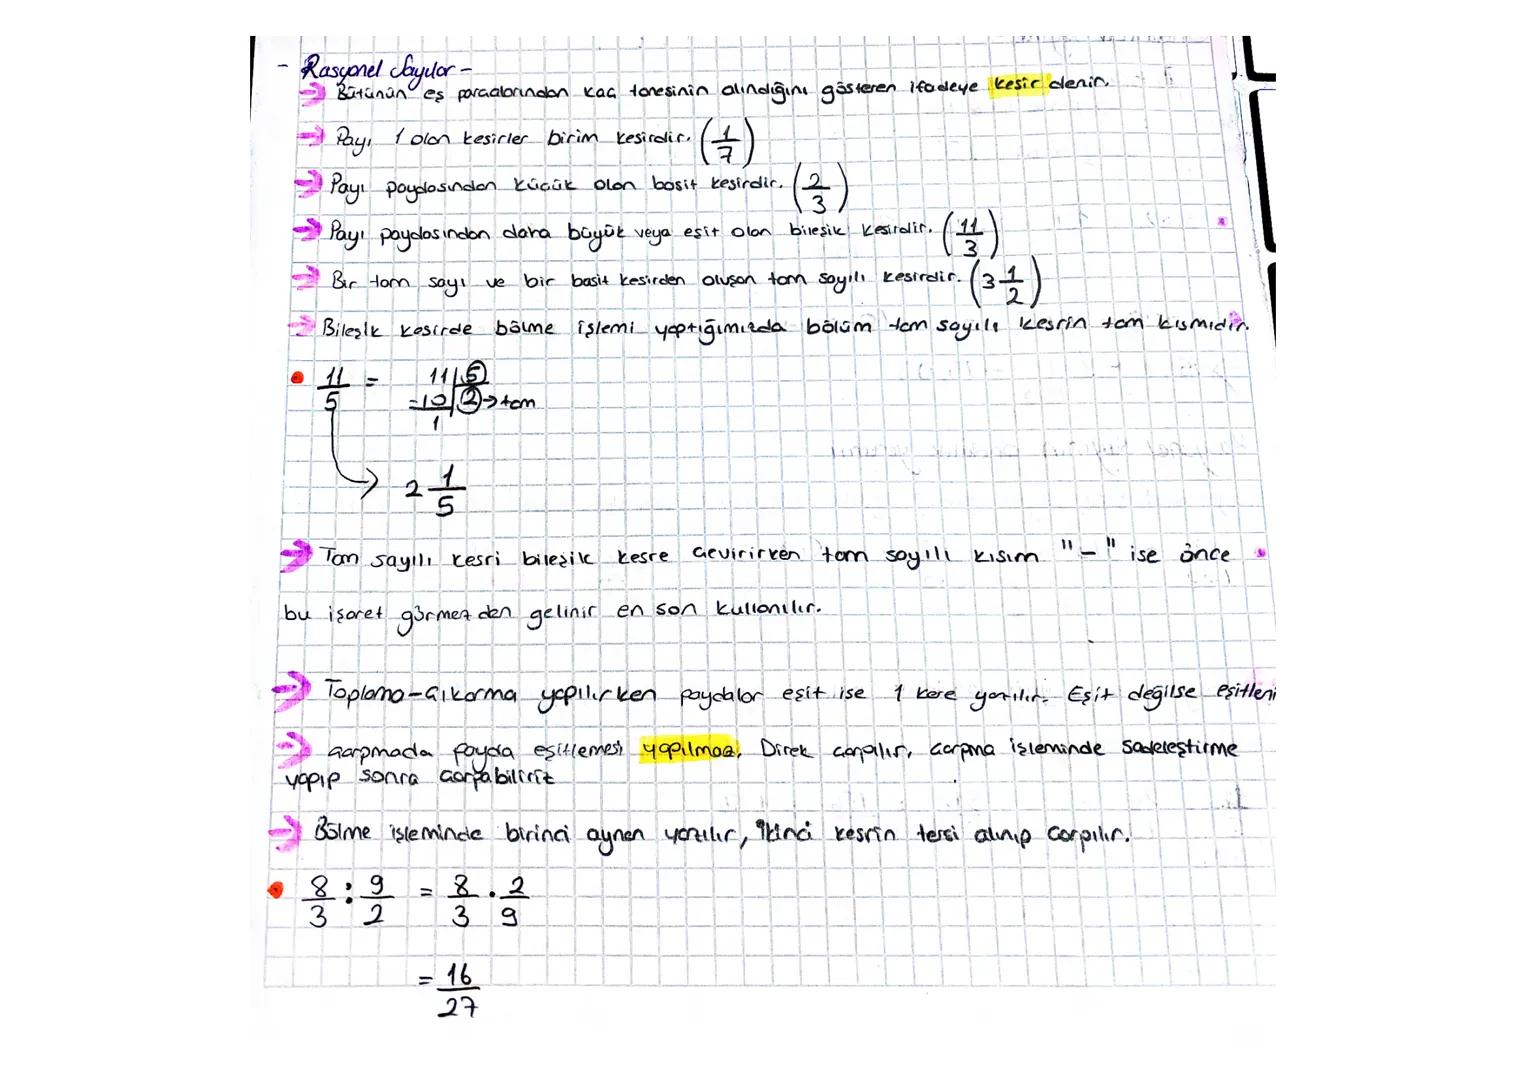 - Rasyonel Sayılar -
→ Bütünün eş parçalarından kaç tanesinin alındığını gösteren ifadeye kesir denir.
→ Payı 1 olan kesirler birim kesirdir. (1/7)
→ Payı paydasından küçük olan basit kesirdir. (2/3)
→ Payı paydasından daha büyük veya eşit olan bileşik kesirdir. (11/3)
→ Bir tam sayı ve bir basit kesirden oluşan tam sayılı kesirdir. (3 1/2)
→ Bileşik kesirde bölme işlemi yaptığımızda bölüm tam sayılı kesrin tam kısmıdır.
• 11/5 = 11 | 5
-10 | 2 → tam
1
→ 2 1/5
→ Tam sayılı kesri bileşik kesre çevirirken tam sayılı kısım "-" ise önce
bu işaret görmezden gelinir en son kullanılır.
→ Toplama-çıkarma yapılırken paydalar eşit ise 1 kere yazılır. Eşit değilse eşitleni
→ Çarpmada payda eşitlemesi yapılmaz. Direk çarpılır, çarpma işleminde sadeleştirme
yapıp sonra çarpabiliriz
→ Bölme işleminde birinci aynen yazılır, ikinci kesrin tersi alınıp çarpılır.
• 8/3 : 9/2 = 8/3 . 2/9
= 16/27